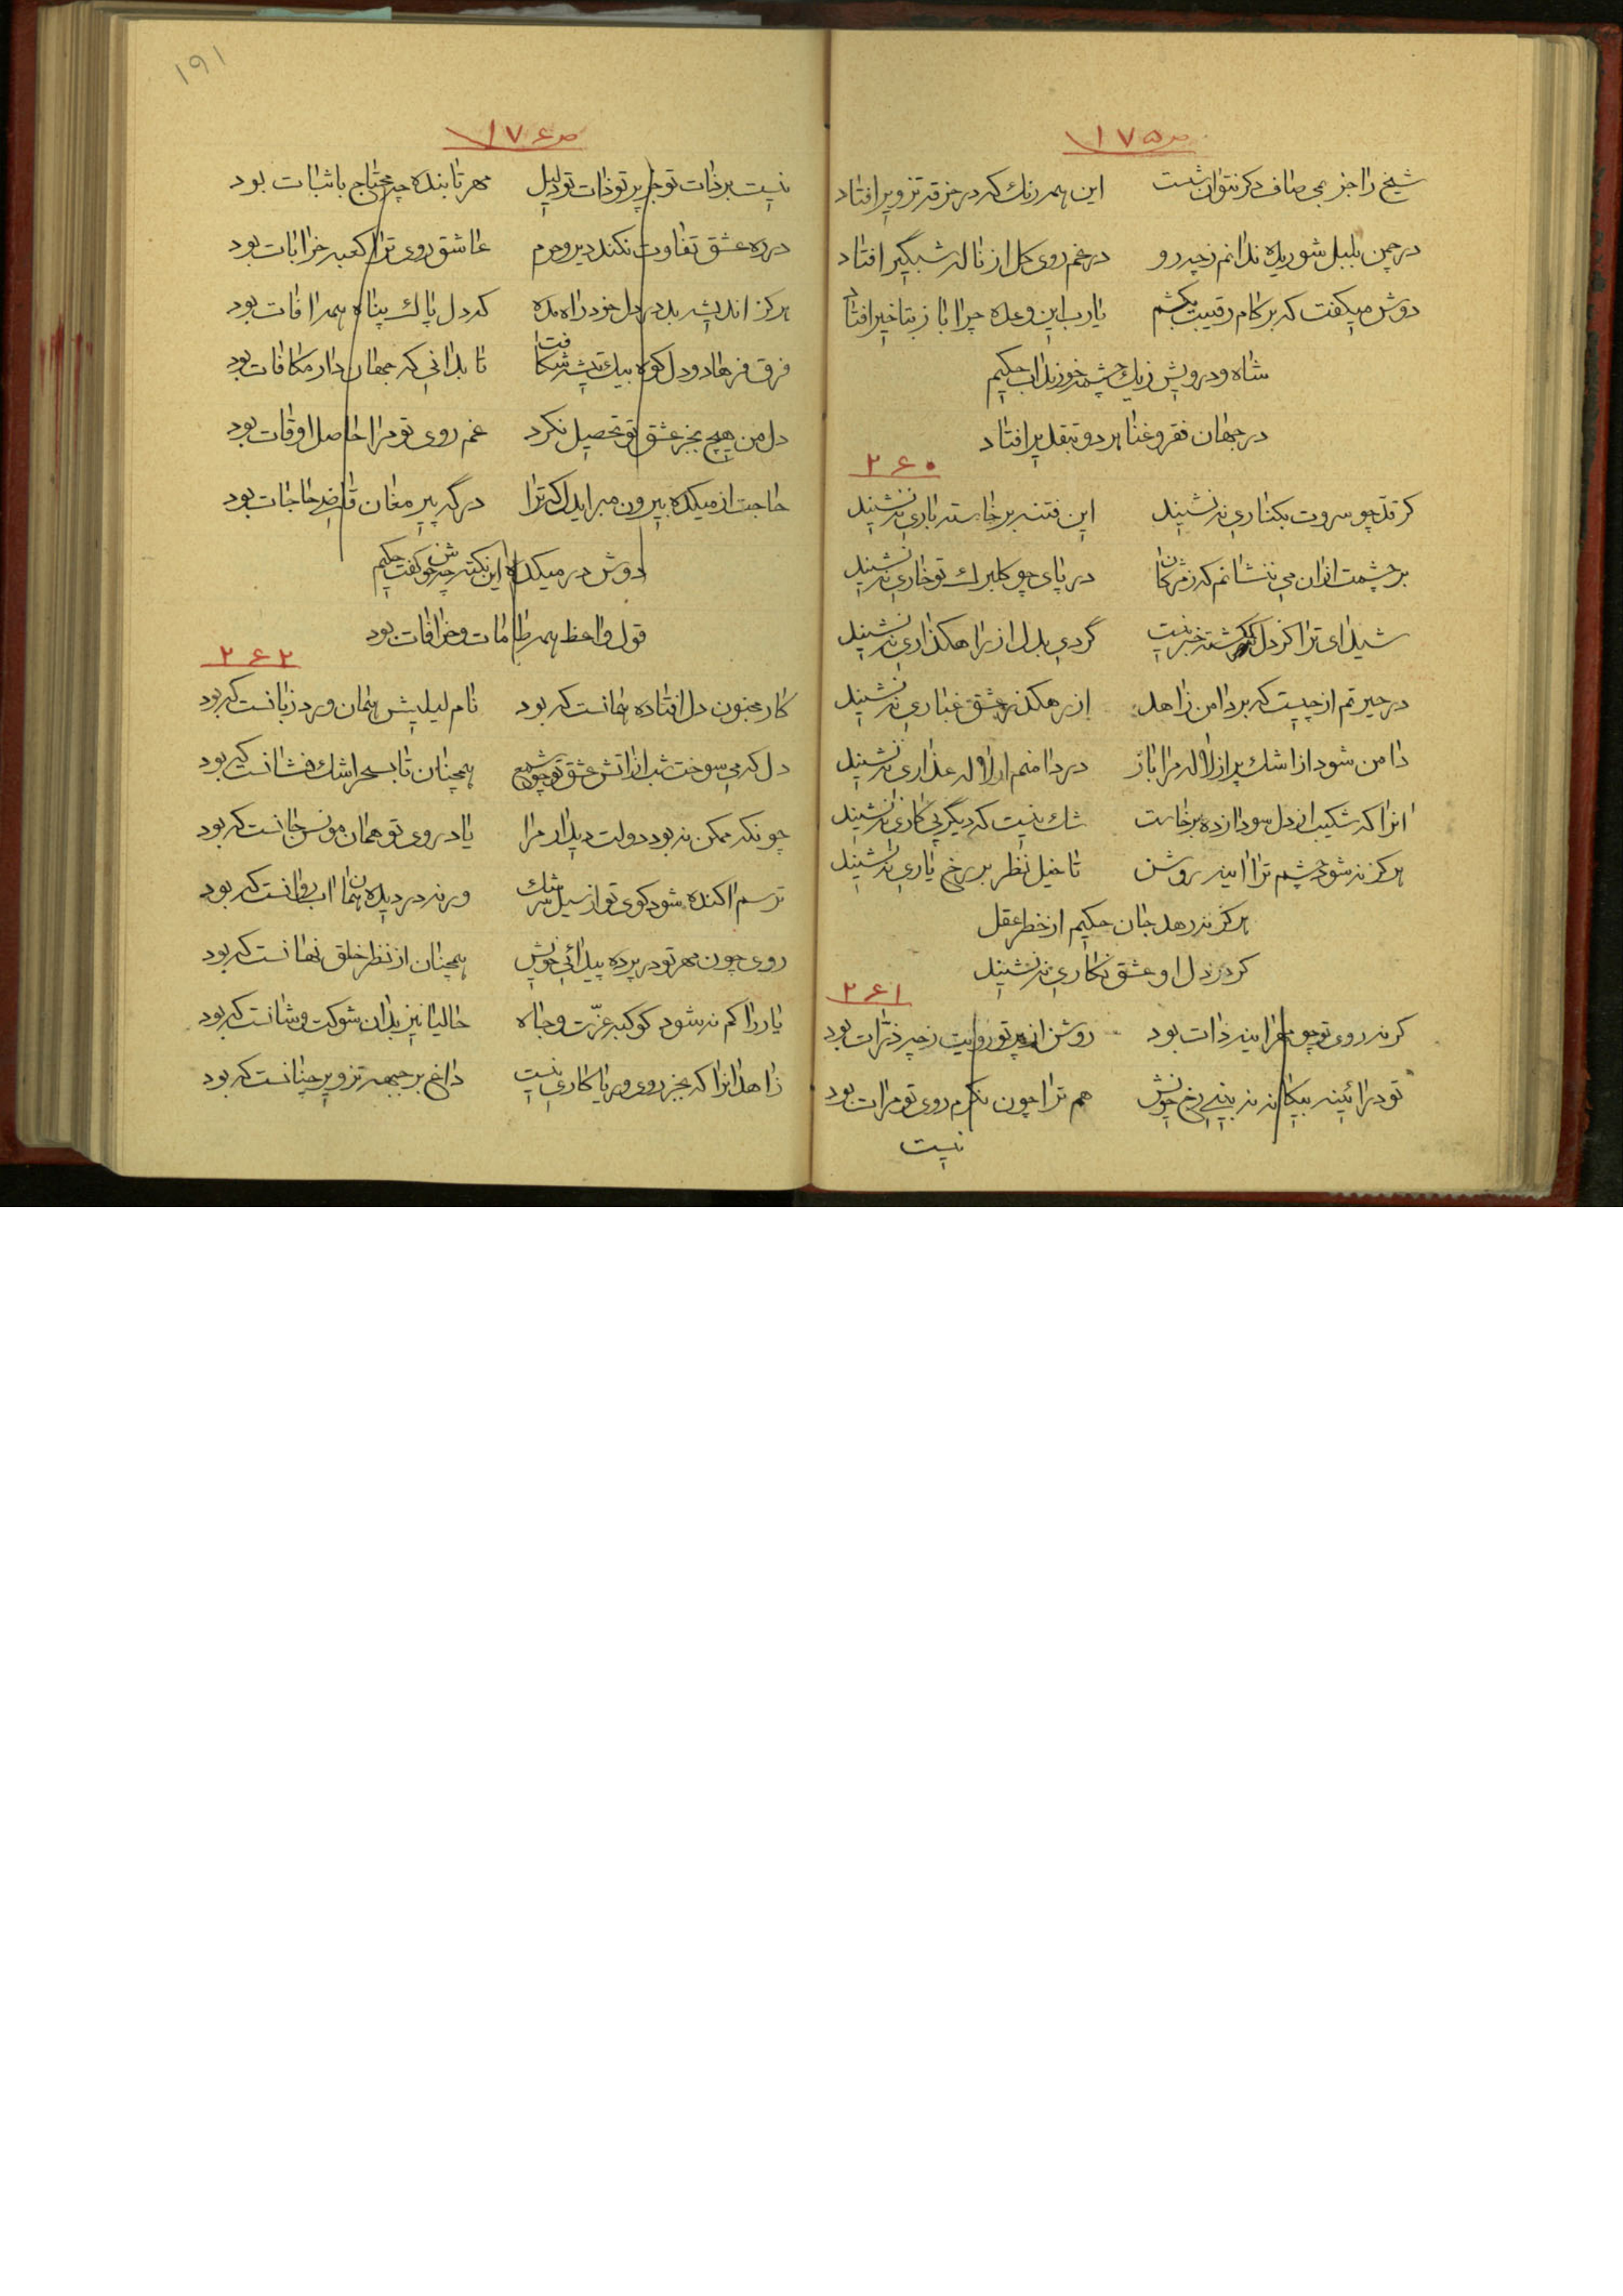 ص ١٧٥
شیخ را جز بمی صاف دکر نتوان شست این همه رنك که در خرقه تزویر افتاد
در چمن بلبل شوریده ندانم ز چه رو در غم روی کل از ناله شبگیر افتاد
دوش میکفت که بر کام رقیبت بکشم یارب این وعده چرا باز بتاخیر افتاد
شاه و درویش ز یك چشمه خورند اب حکیم
در جهان فقر و غنا بر دو بتقدیر افتاد
٢٦٠
کر قد چو سروت بکناری ننشیند این فتنه برخاسته باری ننشیند
بر چشمت ازان می ننشانم که ز مژکان در پای چو کلبرك تو خاری ننشیند
شیدای ترا کز دل کمکشته خبر نیست گردی بدل از راهکذاری ننشیند
در حیرتم از چیست که بر دامن زاهد از رهکذر عشق غباری ننشیند
دامن شود از اشك پر از لاله مرا باز در دامنم ار لاله عذاری ننشیند
انرا که شکیب از دل سودازده برخاست شك نیست که دیگر پی کاری ننشیند
هرکز نشود چشم ترا اینه روشن تا خیل نظر بر رخ یاری ننشیند
هرکز نرهد جان حکیم از خطر عقل
کر در دل او عشق نکاری ننشیند
٢٦١
کرنه روی تو چو مهر اینه ذات بود روشن از پرتو رویت ز چه ذرات بود
تو در ائینه بیکانه نه بینی رخ خویش هم ترا چون نکرم روی تو مرات بود
نیست
ص ١٧٦
١٩١
نیست بر ذات تو جز پرتو ذات تو دلیل مهر تابنده چه محتاج باثبات بود
در ره عشق تفاوت نکند دیر و حرم عاشق روی ترا کعبه خرابات بود
هرکز اندیشه بد در دل خود راه مده که دل پاك پناه همه افات بود
فرق فرهاد و دل کوه بیك تیشه شکافت تا بدانی که جهان دار مکافات بود
دل من هیچ بجز عشق تو تحصیل نکرد غم روی تو مرا حاصل اوقات بود
حاجت از میکده بیرون مبر ایدل که ترا درگه پیر مغان قاضی حاجات بود
دوش در میکده این نکته چه خوش کفت حکیم
قول واعظ همه طامات و خرافات بود
٢٦٢
کار مجنون دل افتاده همانست که بود نام لیلیش همان ورد زبانست که بود
دل که می سوخت شب از اتش عشق تو چو شمع همچنان تا بسحر اشك فشانست که بود
چونکه ممکن نبود دولت دیدار مرا یاد روی تو همان مونس جانست که بود
ترسم اکنده شود کوی تو از سیل سرشك ورنه در دیده همان اب روانست که بود
روی چون مهر تو در پرده پیدائی خویش همچنان از نظر خلق نهانست که بود
یار را کم نشود کوکبه عزّت و جاه حالیا نیز بدان شوکت و شانست که بود
زاهد انرا که بجز روی و ریا کاری نیست داغ بر جبهه تزویر چنانست که بود